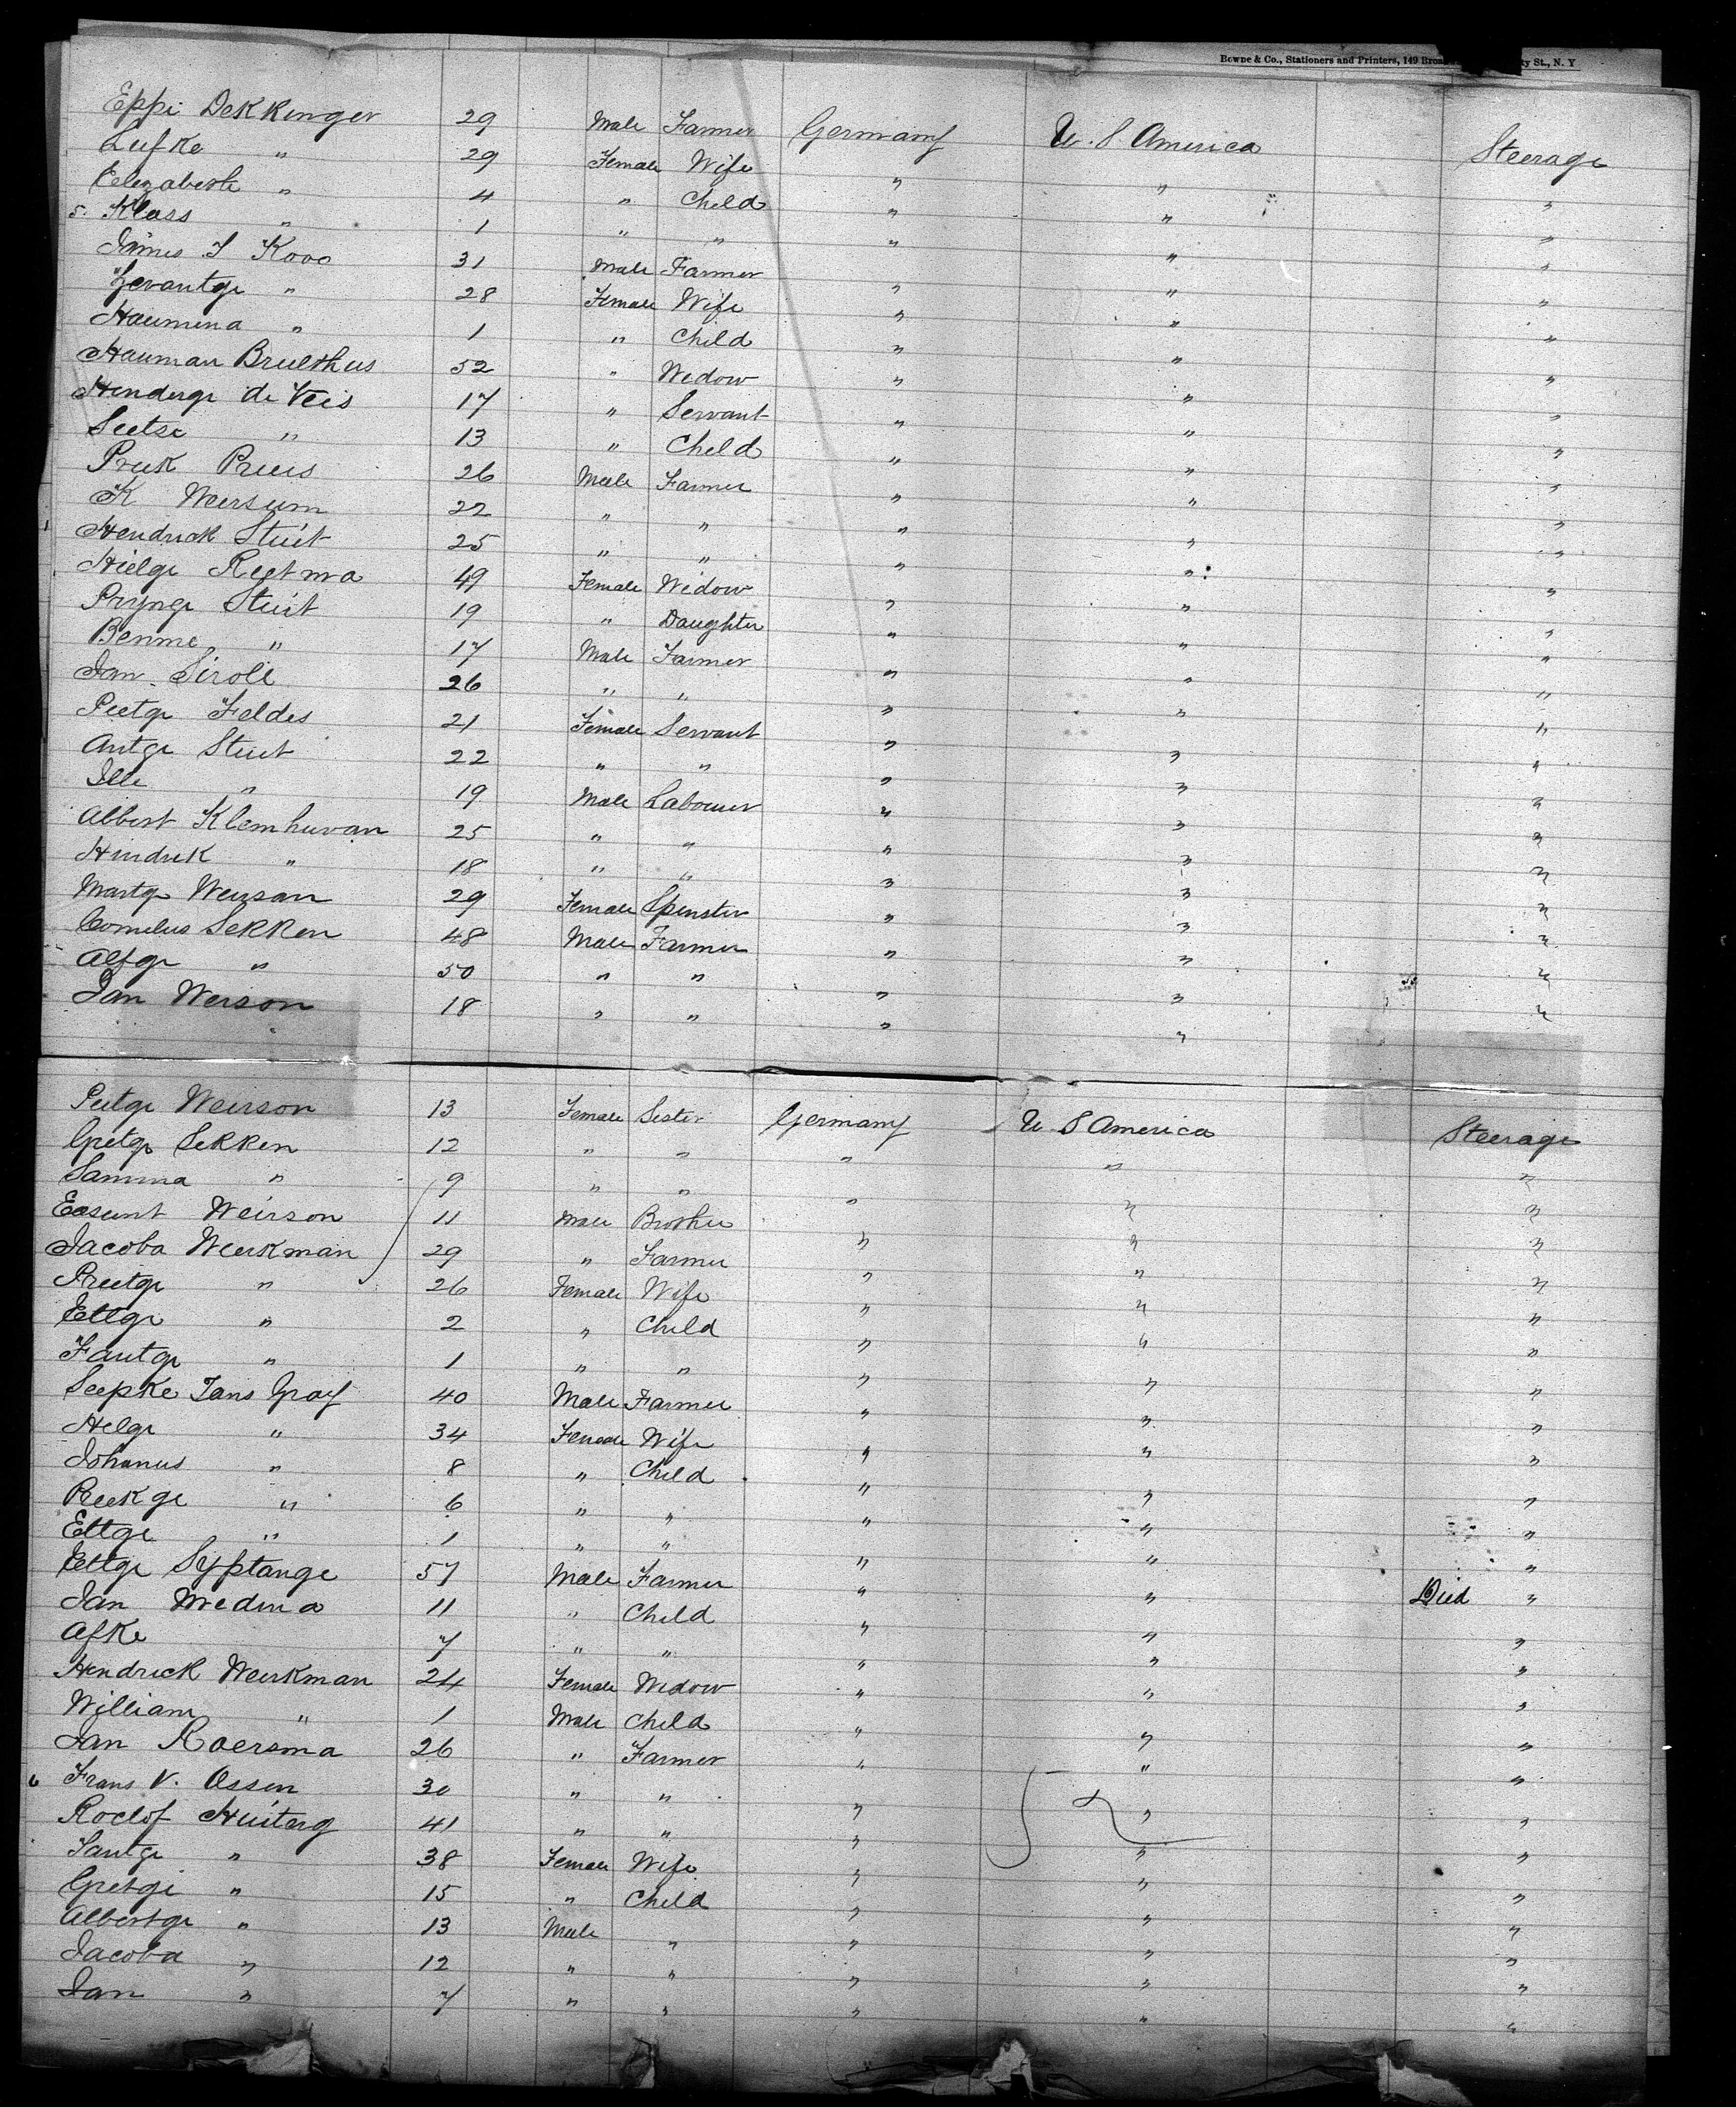 Bowne & Co., Stationers and Printers, 149 Broa ty St., N. Y
Eppi Dekkinger 29 Male Farmer Germany U. S. America Steerage
Lufke " 29 Female Wife " " "
Elizabeth " 4 " Child " " "
5. Klass " 1 " " " " "
James J Kooo 31 Male Farmer " " "
Gerantge " 28 Female Wife " " "
Haumina " 1 " Child " " "
Hauman Brulthus 52 " Widow " " "
Hinderge de Veis 17 " Servant " " "
Seetse " 13 " Child " " "
Preek Preus 26 Male Farmer " " "
K Wersum 22 " " " " "
Hendrick Stuit 25 " " " " "
Hielge Reetma 49 Female Widow " " "
Prynge Stuit 19 " Daughter " " "
Benme " 17 Male Farmer " " "
Jan Siroli 26 " " " " "
Pietge Feldes 21 Female Servant " " "
Antge Stuit 22 " " " " "
Ille " 19 Male Labourer " " "
Albert Klemhuvan 25 " " " " "
Hindrik " 18 " " " " "
Martge Wersan 29 Female Spinster " " "
Cornelus Sekken 48 Male Farmer " " "
Altge " 50 " " " " "
Jan Werson 18 " " " "
Peitge Weirson 13 Female Sister Germany U S America Steerage
Grietge Sekken 12 " " " " "
Samma " 9 " " " " "
Eesunt Weirson 11 Male Brother " " "
Jacoba Weerkman 29 " Farmer " " "
Preetge " 26 Female Wife " " "
Ettge " 2 " Child " " "
Fautge " 1 " " " " "
Seepke Jans Gray 40 Male Farmer " " "
Helge " 34 Female Wife " " "
Johanus " 8 " Child " " "
Reekge " 6 " " " " "
Ettge " 1 " " " " "
Ettge Syptange 57 Male Farmer " " Died "
Jan Medema 11 " Child " " "
Afke 7 " " " " "
Hendrick Weerkman 24 Female Widow " " "
William " 1 Male Child " " "
Jan Roersma 26 " Farmer " " "
6 Frans V. Ossen 30 " " " " "
Roelof Huiterg 41 " " " " "
Jantge " 38 Female Wife " " "
Gretge " 15 " Child " " "
Albertge " 13 Male " " " "
Jacoba " 12 " " " " "
Jan " 7 " " " " "